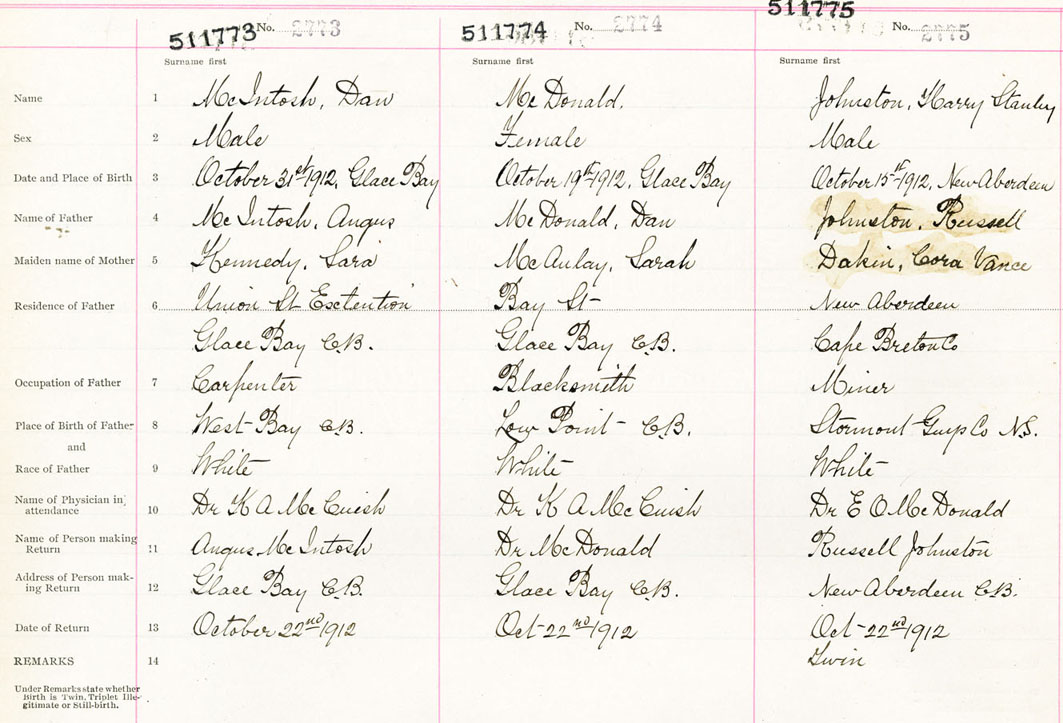 511773 No. 2773 511774 No. 2774 511775 No. 2775
Surname first Surname first Surname first
Name 1 McIntosh, Dan McDonald. Johnston, Harry Stanley
Sex 2 Male Female Male
Date and Place of Birth 3 October 31st 1912, Glace Bay October 19th 1912, Glace Bay October 15th 1912, New Aberdeen
Name of Father 4 McIntosh, Angus McDonald, Dan Johnston, Russell
Maiden name of Mother 5 Kennedy, Sara McAulay, Sarah Dakin, Cora Vance
Residence of Father 6 Union St Extention Bay St New Aberdeen
Glace Bay C.B. Glace Bay C.B. Cape Breton Co
Occupation of Father 7 Carpenter Blacksmith Miner
Place of Birth of Father 8 West Bay C.B. Low Point C.B. Stormont Guys Co N.S.
and
Race of Father 9 White White White
Name of Physician in
attendance 10 Dr K A McCuish Dr K A McCuish Dr E O McDonald
Name of Person making
Return 11 Angus McIntosh Dr McDonald Russell Johnston
Address of Person mak-
ing Return 12 Glace Bay C.B. Glace Bay C.B. New Aberdeen C.B.
Date of Return 13 October 22nd 1912 Oct 22nd 1912 Oct 22nd 1912
REMARKS 14 Twin
Under Remarks state whether
Birth is Twin, Triplet Ille-
gitimate or Still-birth.